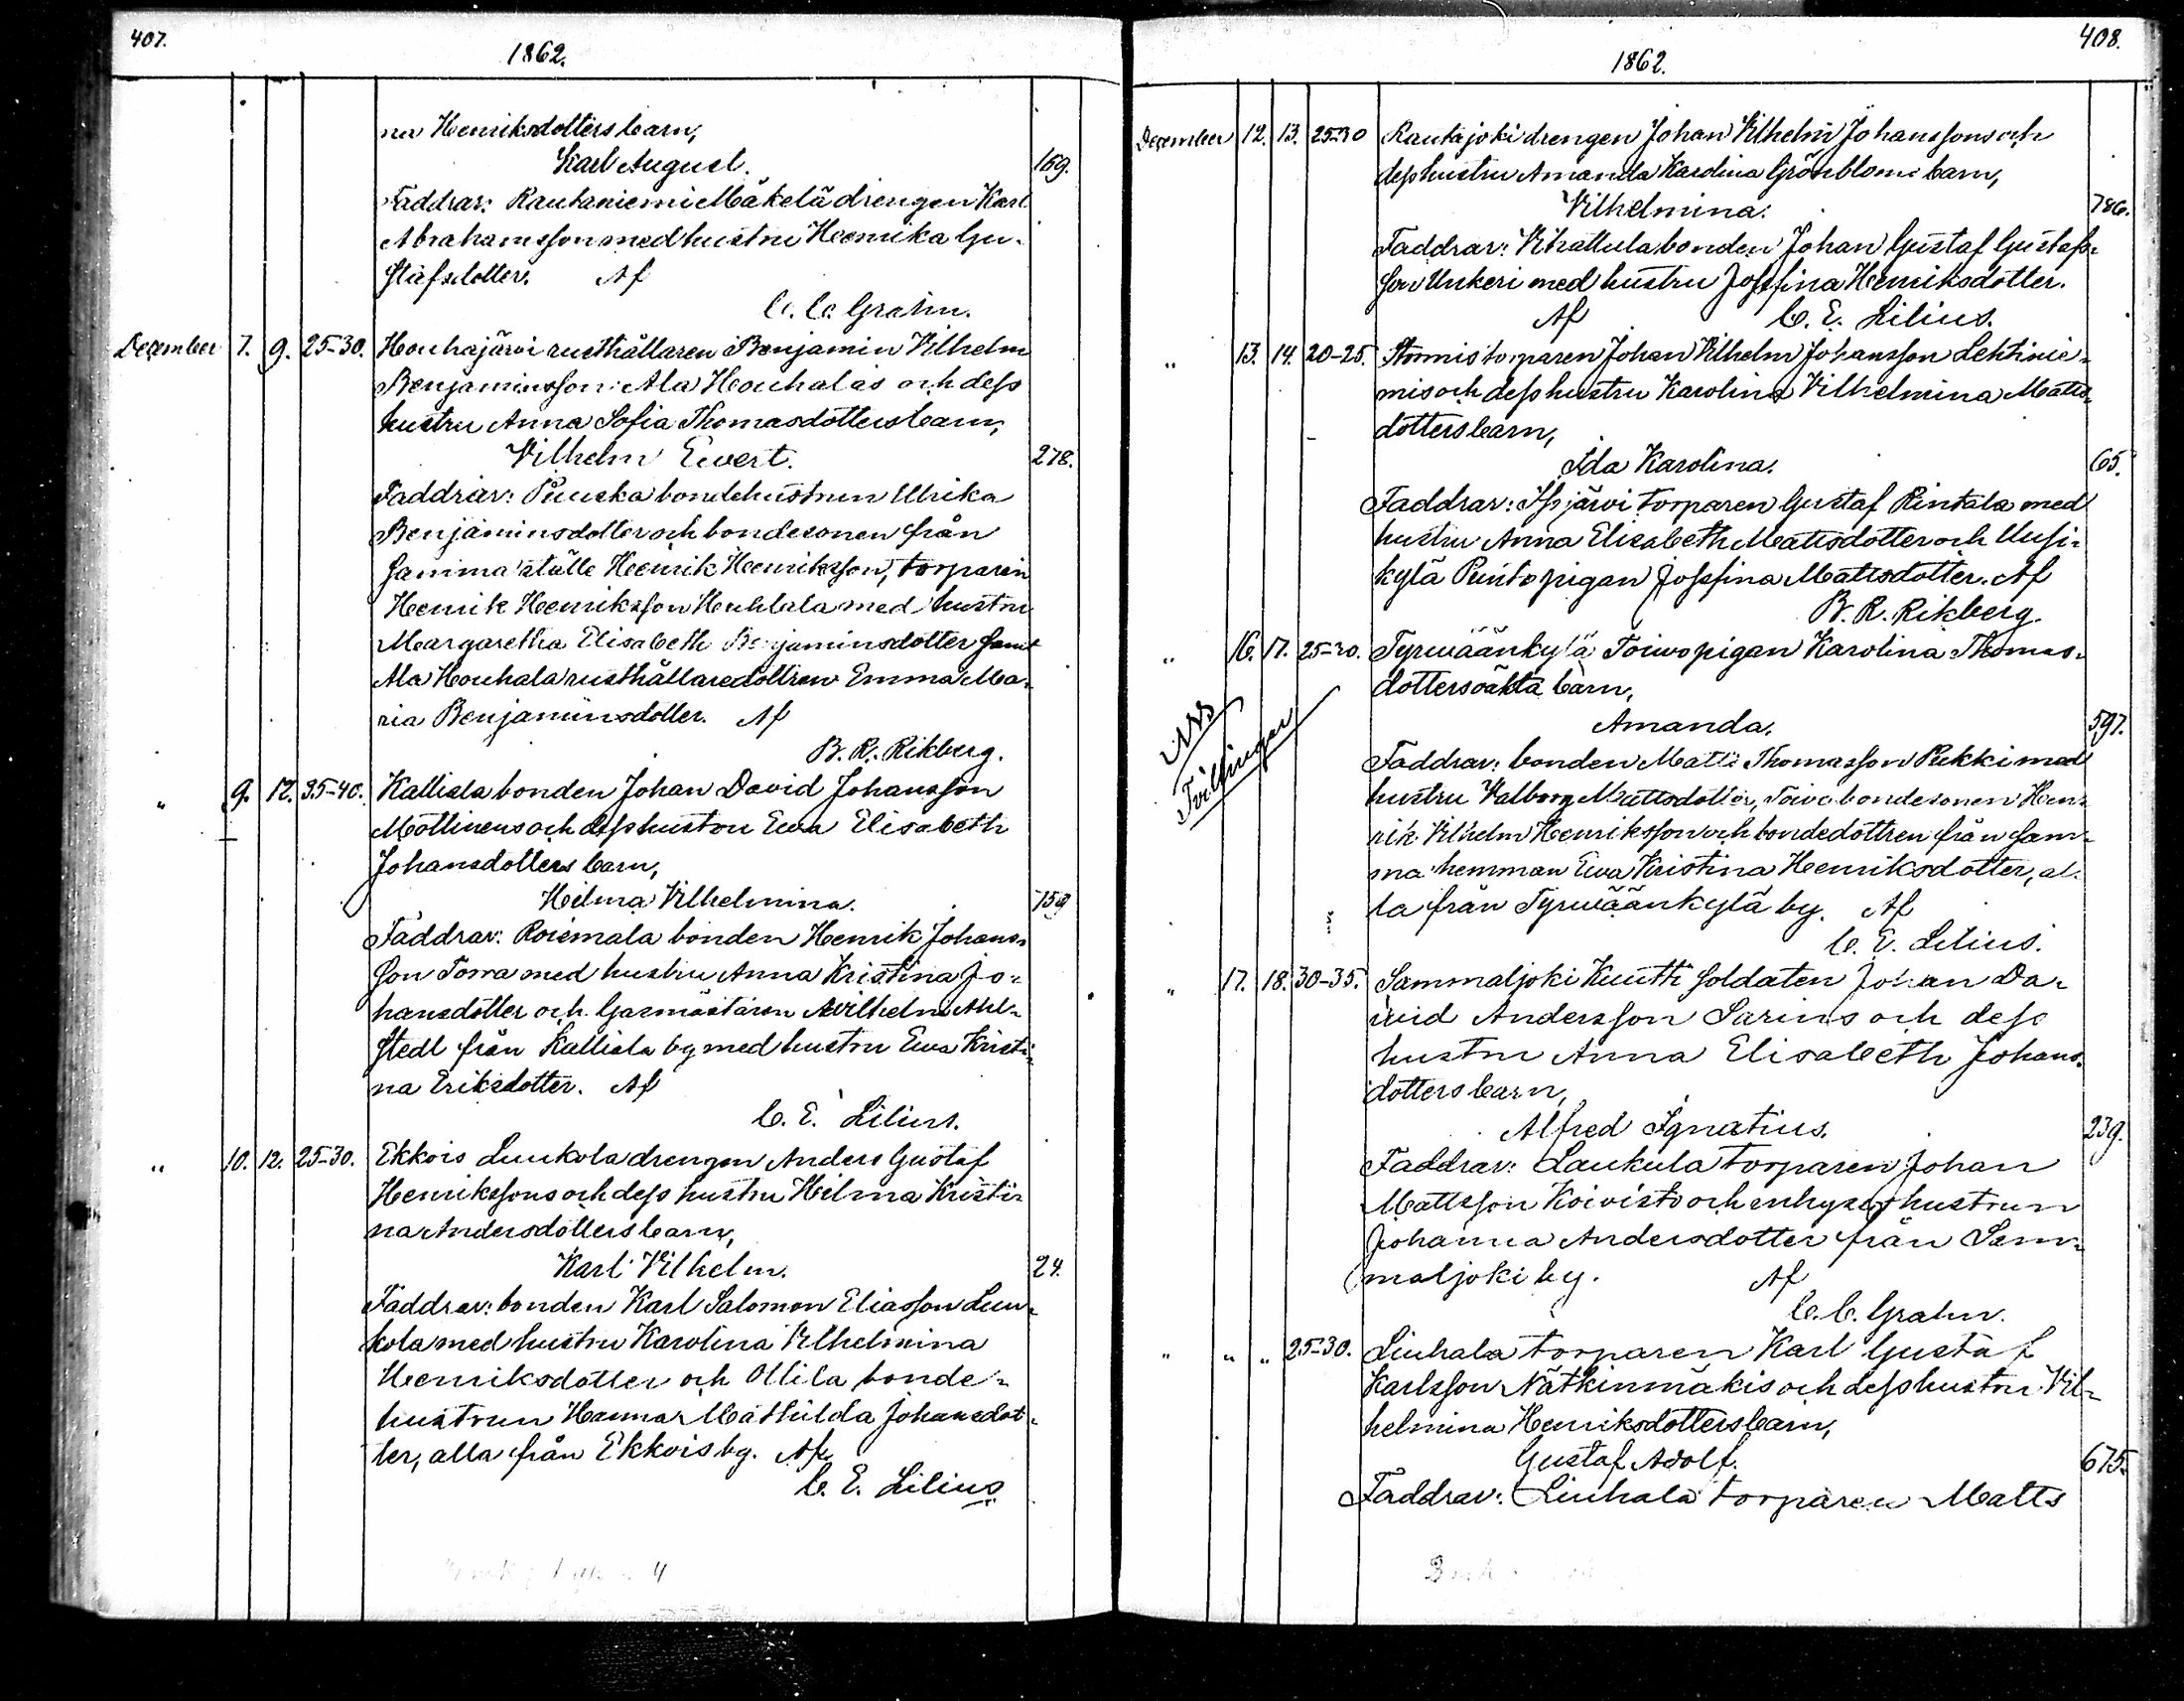 407.
1862.
na Henriksdotters barn,
Karl August. 159.
Faddrar: Rautaniemi Mäkelä drengen Karl
Abrahamsson med hustru Heenrika Gu-
stafsdotter. Af
C. C. Grahn.
December 7. 9. 25-30. Houhajärvi rusthållaren Benjamin Vilhelm
Benjaminsson Ala Houhalas och dess
hustru Anna Sofia Thomasdotters barn,
Vilhelm Evert. 278.
Faddrar: Punska bondehustrun Ulrika
Benjaminsdotter och bondesonen från
samma ställe Heenrik Heenriksson, torparen
Henrik Heenriksson Huhtala med hustru
Margaretha Elisabeth Benjaminsdotter samt
Ala Houhala rusthållaredottren Emma Ma-
ria Benjaminsdotter. Af
B. R. Rikberg.
" 9. 12. 35-40. Kalliala bonden Johan David Johansson
Möttinens och dess hustru Eva Elisabeth
Johansdotters barn,
Heilma Vilhelmina. 159
Faddrar: Roismala bonden Henrik Johans-
son Torra med hustru Anna Kristina Jo-
hansdotter och Garmästaren A Vilhelm Ahl-
stedt från Kalliala by med hustru Eva Kristi-
na Eriksdotter. Af
C. E. Lilius.
" 10. 12. 25-30. Ekkois Luukola drengen Anders Gustaf
Henrikssons och dess hustru Heilma Kristi-
na Andersdotters barn,
Karl Vilhelm. 24.
Faddrar: bonden Karl Salomon Eliasson Luu-
kola med hustru Karolina Vilhelmina
Heenriksdotter och Ollila bonde-
hustrun Hanna Mathilda Johansdot-
ter, alla från Ekkois by. Af
C. E. Lilius
408.
1862.
December 12. 13. 25-30 Rautajoki drengen Johan Vilhelm Johanssons och
dess hustru Amanda Karolina Grönbloms barn,
Vilhelmina. 786.
Faddrar: Vihattula bonden Johan Gustaf Gustafs-
son Unkeri med hustru Josefina Heenriksdotter.
Af C. E. Lilius.
" 13. 14. 20-25. Stormis torparen Johan Vilhelm Johansson Lehtinie-
mis och dess hustru Karolina Vilhelmina Matts-
dotters barn,
Ida Karolina. 65.
Faddrar: Issjärvi torparen Gustaf Rintala med
hustru Anna Elisabeth Mattsdotter och Uusi-
kylä Puntopigan Josefina Mattsdotter. Af
B. R. Rikberg.
" 16. 17. 25-30. Tyrväänkylä Toivo pigan Karolina Thomas-
dotters oäkta barn,
NB
Tvillingar
Amanda. 597.
Faddrar: bonden Matts Thomasson Pukki med
hustru Valborg Mattsdotter, Toivo bondesonen Hen-
rik Vilhelm Henriksson och bondedottren från sam-
ma hemman Eva Kristina Heenriksdotter, al-
la från Tyrväänkylä by. Af
C. E. Lilius.
" 17. 18. 30-35. Sammaljoki Kuutti soldaten Johan Da-
vid Andersson Sarins och dess
hustru Anna Elisabeth Johans-
dotters barn,
Alfred Ignatius. 239.
Faddrar: Laukula torparen Johan
Mattsson Koivisto och inhyses hustrun
Johanna Andersdotter från Sam-
maljoki by. Af
C. C. Grahn.
" " " 25-30. Liuhala torparen Karl Gustaf
Karlsson Nätkinmäkis och dess hustru Vil-
helmina Henriksdotters barn,
Gustaf Adolf. 675.
Faddrar: Liuhala torparen Matts